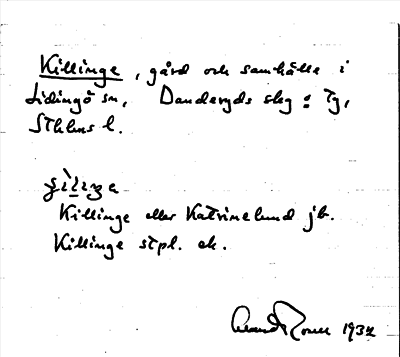 Killinge, gård och samhälle i
Lidingö sn, Danderyds skg : Ty,
Sthlms l.
Killinge eller Katrinelund jb.
Killinge stpl. ek.
1934